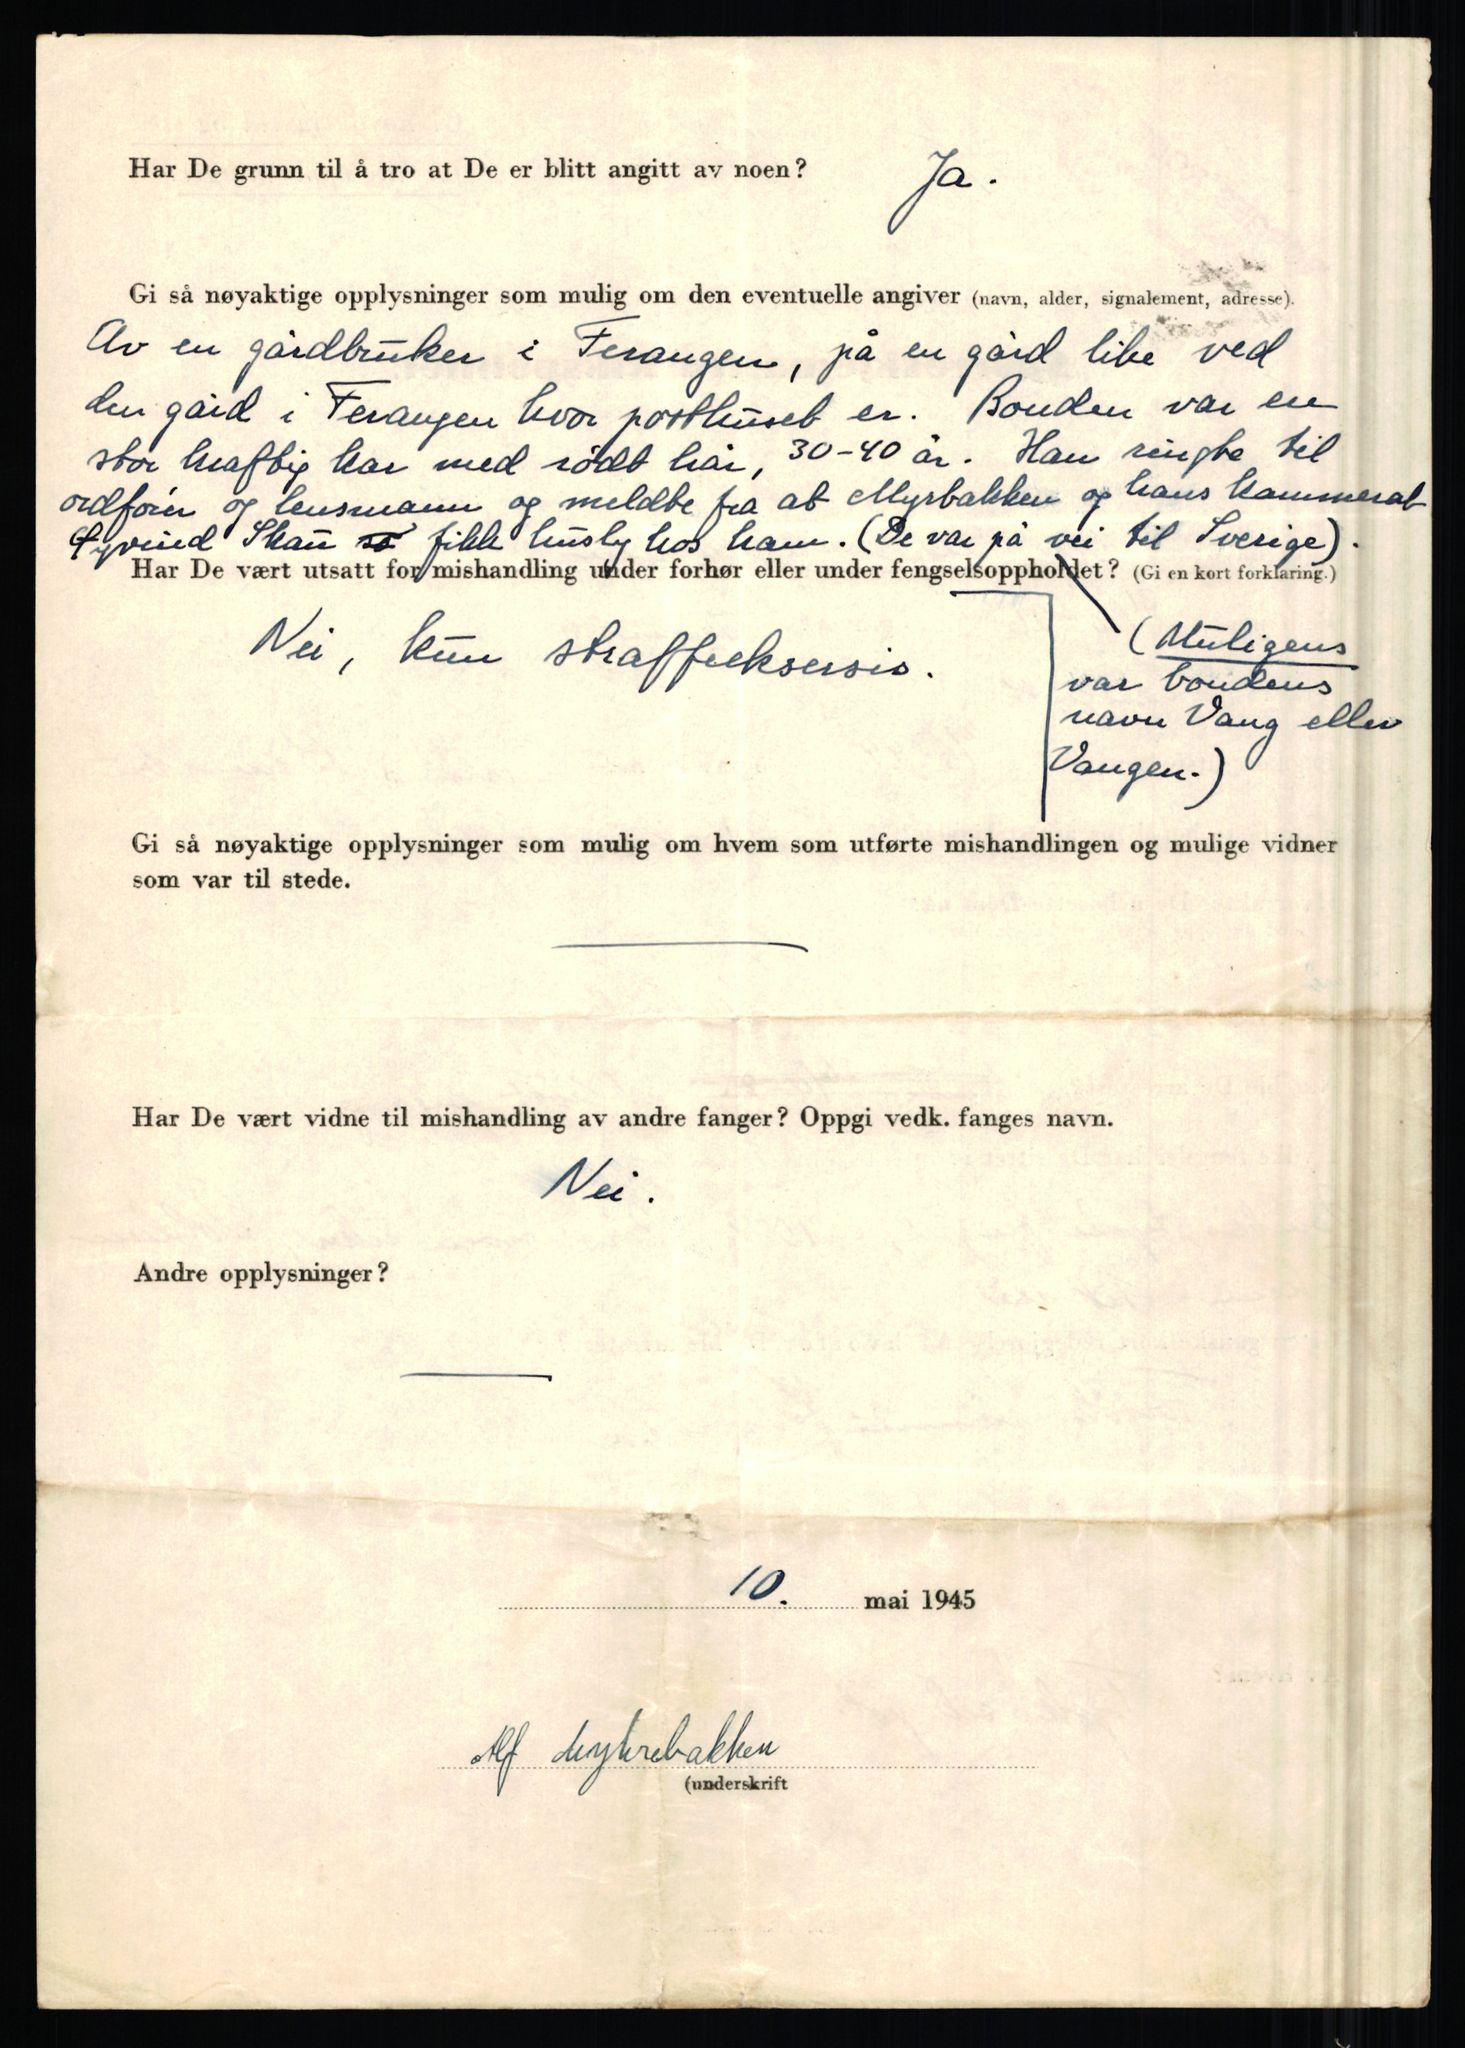 Har De grunn til å tro at De er blitt angitt av noen? Ja.
Gi så nøyaktige opplysninger som mulig om den eventuelle angiver (navn, alder, signalement, adresse).
Av en gårdbruker i Ferangen, på en gård like ved
den gård i Ferangen hvor posthuset er. Bonden var en
stor kraftig kar med rödt hår, 30-40 år. Han ringte til
ordförer og lensmann og meldte fra at Myrbakken og hans kammerat
Öyvind Skau fikk husly hos ham. (De var på vei til Sverige).
Har De vært utsatt for mishandling under forhør eller under fengselsoppholdet? (Gi en kort forklaring.)
Nei, kun straffeeksersis.
(Muligens
var bondens
navn Vang eller
Vangen.)
Gi så nøyaktige opplysninger som mulig om hvem som utførte mishandlingen og mulige vidner
som var til stede.
Har De vært vidne til mishandling av andre fanger? Oppgi vedk. fanges navn.
Nei.
Andre opplysninger?
10. mai 1945
Alf Myhrebakken
(underskrift